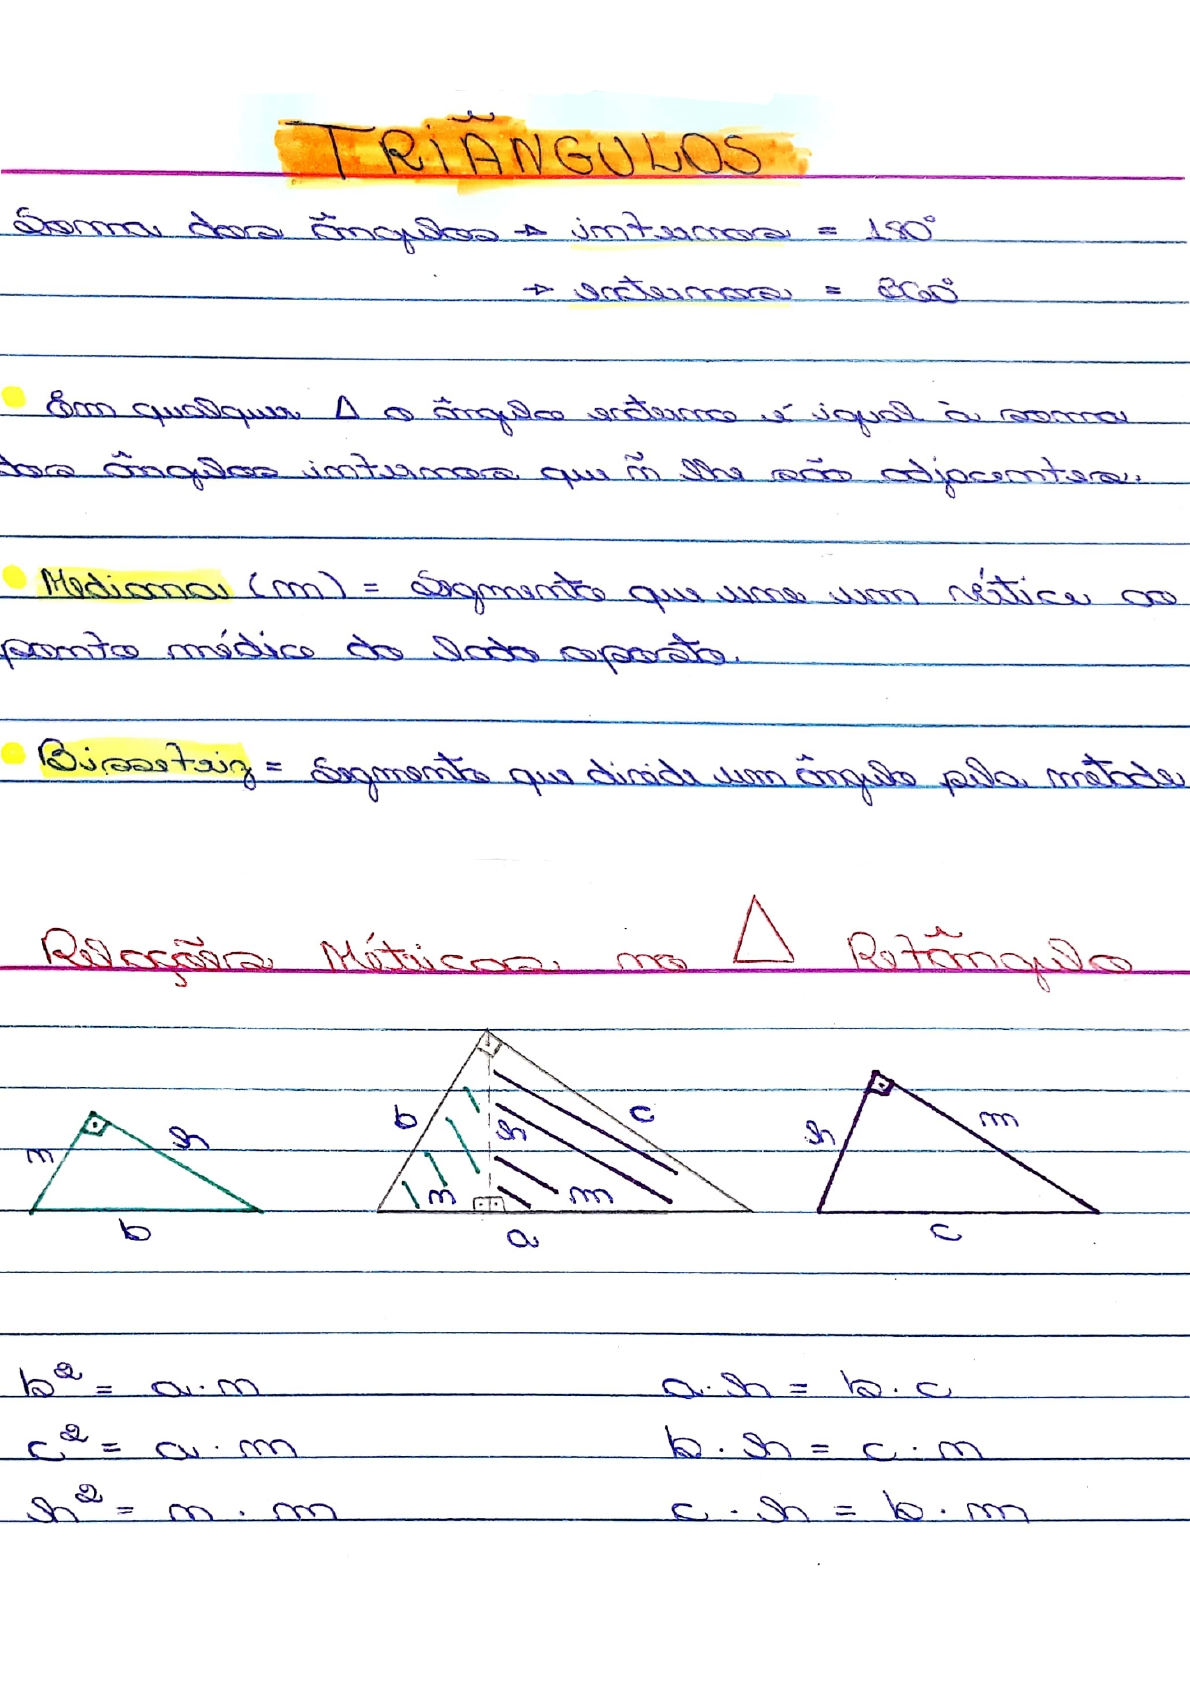 TRIÂNGULOS
Soma dos ângulos → internos = 180°
→ externos = 360°
Em qualquer Δ o ângulo externo é igual à soma
dos ângulos internos que ñ lhe são adjacentes.
Mediana (m) = Segmento que une um vértice ao
ponto médio do lado oposto.
Bissetriz = Segmento que divide um ângulo pela metade
Relações Métricas no Δ Retângulo
n h b
b c h n m a
h m c
b² = a · n
c² = a · m
h² = n · m
a · h = b · c
b · h = c · n
c · h = b · m